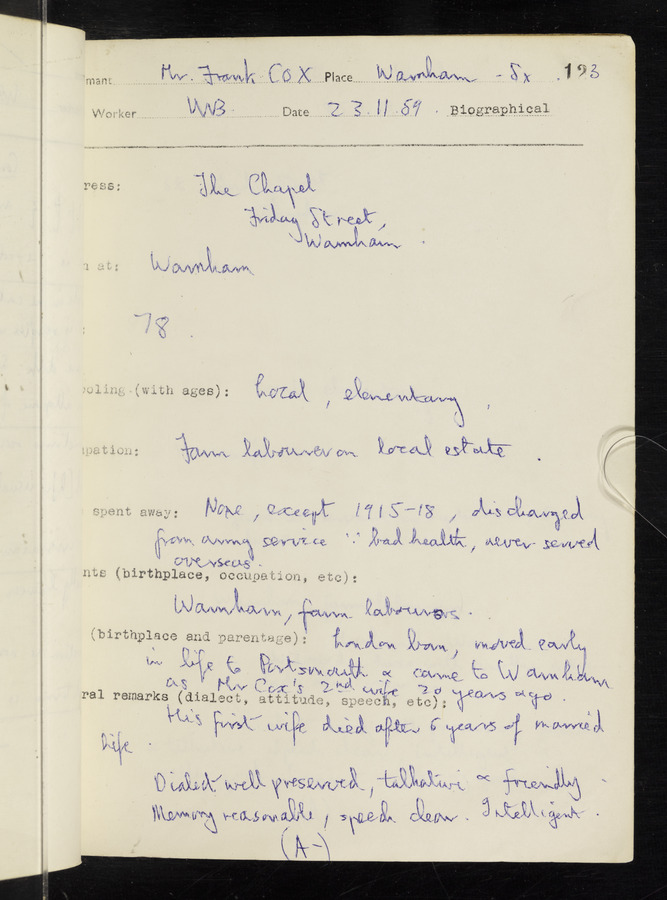 mant Mr. Frank Cox Place Warnham - Sx 193
Worker Date 23.11.59. Biographical
ress: The Chapel
Friday Street,
Warnham.
n at: Warnham
: 78.
oling (with ages): Local, elementary,
pation: Farm labourer on local estate.
spent away: None, except 1915-18, discharged
from army service ∵ bad health, never served
overseas.
nts (birthplace, occupation, etc):
Warnham, farm labourers.
(birthplace and parentage): London born, moved early
in life to Portsmouth & came to Warnham
as Mr Cox's 2nd wife 30 years ago.
ral remarks (dialect, attitude, speech, etc):
His first wife died after 6 years of married
life.
Dialect well preserved, talkative & friendly.
Memory reasonable, speech clear. Intelligent.
(A-)